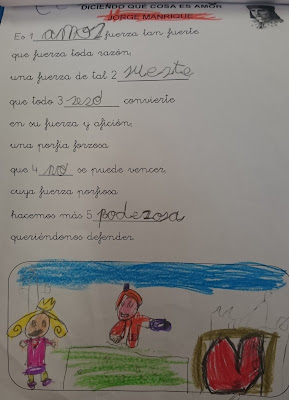 DICIENDO QUE COSA ES AMOR
JORGE MANRIQUE
Es 1 amor fuerza tan fuerte
que fuerza toda razón;
una fuerza de tal 2 suerte
que todo 3 seso convierte
en su fuerza y afición;
una porfía forzosa
que 4 no se puede vencer,
cuya fuerza porfiosa
hacemos más 5 poderosa
queriéndonos defender.